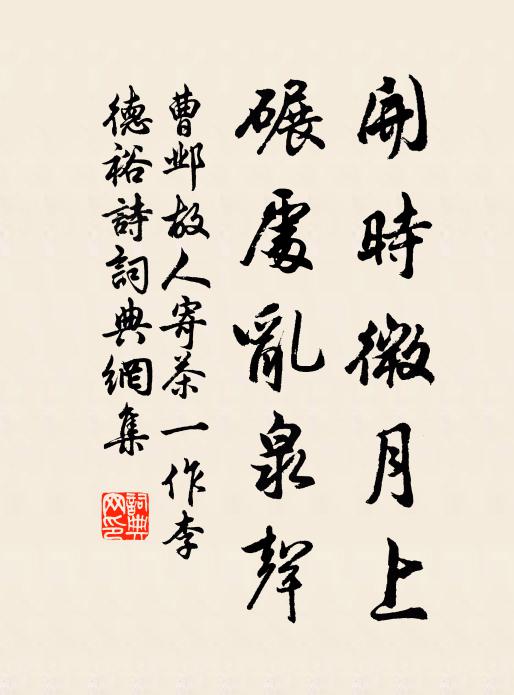 開時微月上
碾處亂泉聲
曹鄴故人寄茶一作李
德裕詩詞典網集
詞典网印